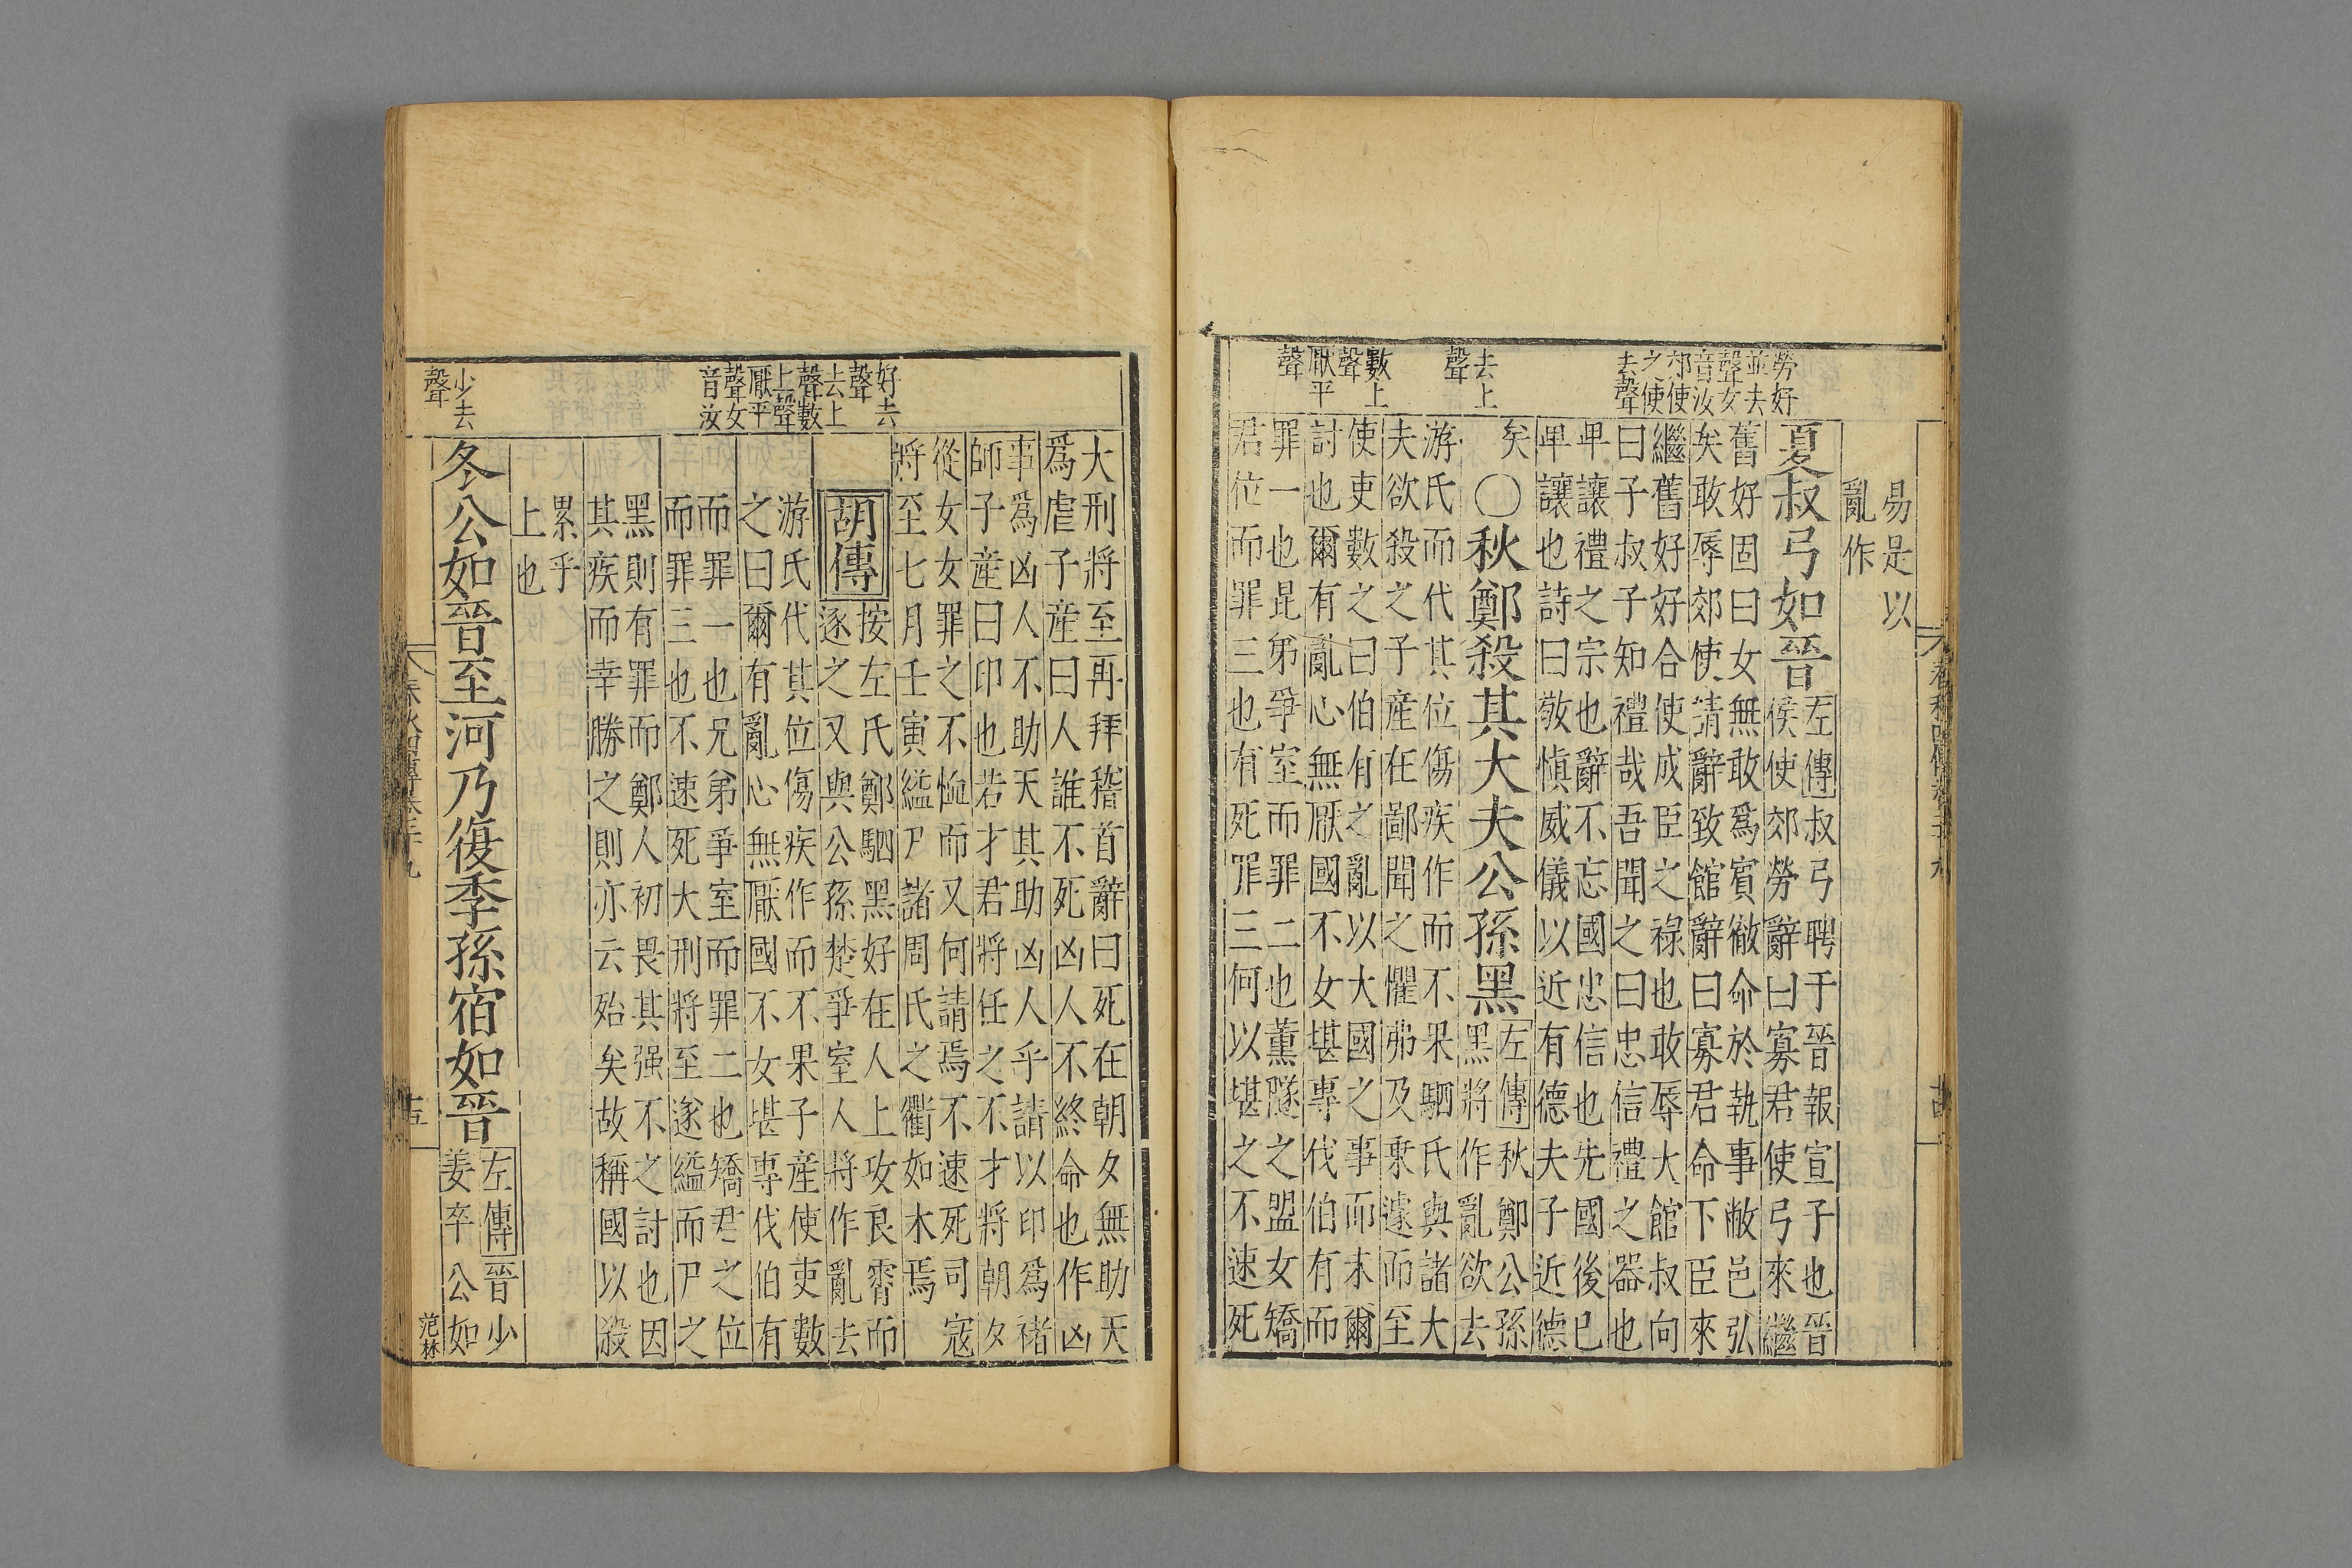 勞好
並去
聲女
音汝
郊使
之使
去聲
去上
聲
數上
聲
厭平
聲
易是以
亂作
夏叔弓如晉
左傳叔弓聘于晉報宣子也晉
侯使郊勞辭曰寡君使弓來繼
舊好固曰女無敢爲賓徹命於執事敝邑弘
矣敢辱郊使請辭致館辭曰寡君命下臣來
繼舊好好合使成臣之祿也敢辱大館叔向
曰子叔子知禮哉吾聞之曰忠信禮之器也
卑讓禮之宗也辭不忘國忠信也先國後已
卑讓也詩曰敬愼威儀以近有德夫子近德
矣
○秋鄭殺其大夫公孫黑
左傳秋鄭公孫
黑將作亂欲去
游氏而代其位傷疾作而不果駟氏與諸大
夫欲殺之子產在鄙聞之懼弗及乘遽而至
使吏數之曰伯有之亂以大國之事而未爾
討也爾有亂心無厭國不女堪專伐伯有而
罪一也昆弟爭室而罪二也薰隧之盟女矯
君位而罪三也有死罪三何以堪之不速死
好去
聲
去上
聲數
上聲
厭平
聲女
音汝
少去
聲
大刑將至再拜稽首辭曰死在朝夕無助天
爲虐子產曰人誰不死凶人不終命也作凶
事爲凶人不助天其助凶人乎請以印爲褚
師子產曰印也若才君將任之不才將朝夕
從女女罪之不恤而又何請焉不速死司寇
將至七月壬寅縊尸諸周氏之衢加木焉
胡傳
按左氏鄭駟黑好在人上攻良霄而
逐之又與公孫楚爭室人將作亂去
游氏代其位傷疾作而不果子產使吏數
之曰爾有亂心無厭國不女堪專伐伯有
而罪一也兄弟爭室而罪二也矯君之位
而罪三也不速死大刑將至遂縊而尸之
黑則有罪而鄭人初畏其强不之討也因
其疾而幸勝之則亦云殆矣故稱國以殺
累乎
上也
冬公如晉至河乃復季孫宿如晉
左傳晉少
姜卒公如
范林